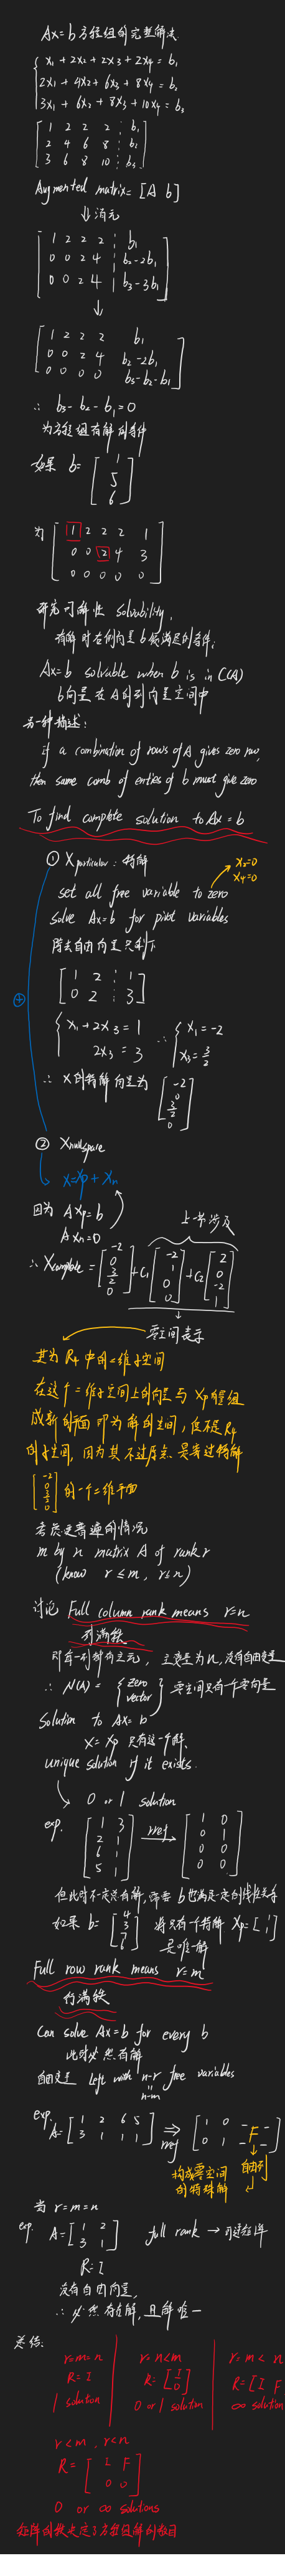 Ax=b 方程组的完整解法
x1 + 2x2 + 2x3 + 2x4 = b1
2x1 + 4x2 + 6x3 + 8x4 = b2
3x1 + 6x2 + 8x3 + 10x4 = b3
1 2 2 2 b1
2 4 6 8 b2
3 6 8 10 b3
Augmented matrix = [A b]
↓消元
1 2 2 2 b1
0 0 2 4 b2-2b1
0 0 2 4 b3-3b1
↓
1 2 2 2 b1
0 0 2 4 b2-2b1
0 0 0 0 b3-b2-b1
∴ b3-b2-b1=0
为方程组有解的条件
如果 b= [1 5 6]
为 1 2 2 2 1
0 0 2 4 3
0 0 0 0 0
研究可解性 solvability,
有解时右侧向量b须满足的条件;
Ax=b solvable when b is in C(A)
b向量在A的列向量空间中
另一种描述:
if a combination of rows of A gives zero row,
then same comb of enties of b must give zero
To find complete solution to Ax=b
① Xparticular: 特解
x2=0
x4=0
set all free variable to zero
solve Ax=b for pivot variables
除去自由向量只剩下
1 2 1
0 2 3
x1+2x3=1 ∴ x1=-2
2x3=3 x3=3/2
∴ x的特解向量为 [-2 0 3/2 0]
② Xnullspace
x=xp+xn
因为 Axp=b
Axn=0
上一节涉及
∴ Xcomplete = [-2 0 3/2 0] + C1 [-2 1 0 0] + C2 [2 0 -2 1]
零空间表示
其为R4中的二维子空间
在这个二维子空间上的向量与Xp向量组
成新的平面即为解的空间,但不是R4
的子空间,因为其不过原点,是穿过特解
[-2 0 3/2 0] 的一个二维平面
考虑更普遍的情况
m by n matrix A of rank r
(know r≤m, r≤n)
讨论 Full column rank means r=n
列满秩
即每一列都有主元,主变量为n,没有自由变量
∴ N(A) = {zero vector} 零空间只有一个零向量
Solution to Ax=b
x=xp 只有这一个解
unique solution if it exists.
0 or 1 solution
exp.
1 3
2 1
6 1
5 1
rref
1 0
0 1
0 0
0 0
如果 b= [4 3 7 6] 将只有一个特解 Xp= [1 1]
是唯一解
Full row rank means r=m
行满秩
Can solve Ax=b for every b
此时必然有解
自由变量 left with n-r free variables
n-m
exp.
A= 1 2 6 5
3 1 1 1
rref
1 0 F
0 1
自由列
构成零空间
的特殊解
当 r=m=n
exp. A= 1 2
3 1
full rank → 可逆矩阵
R=I
没有自由向量,
∴ 必然存在解,且解唯一
总结:
r=m=n
R=I
1 solution
r=n<m
R= [I 0]
0 or 1 solution
r=m<n
R=[I F
∞ solution
r<m, r<n
R= I F
0 0
0 or ∞ solutions
矩阵的秩决定了方程组解的数目